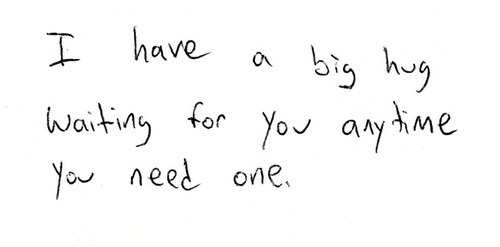 I have a big hug
waiting for you anytime
you need one.